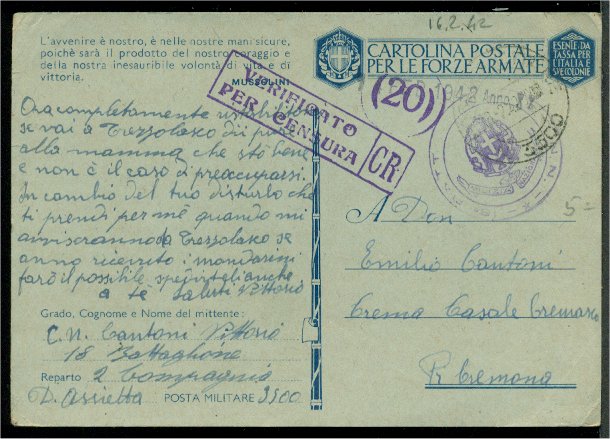 16.2.42
L'avvenire è nostro, è nelle nostre mani sicure,
poichè sarà il prodotto del nostro coraggio e
della nostra inesauribile volontà di vita e di
vittoria.
MUSSOLINI
CARTOLINA POSTALE
PER LE FORZE ARMATE
ESENTE DA
TASSA PER
L'ITALIA E
SVE COLONIE
VERIFICATO
PER CENSURA
CR
(20)
1942
3500
5=
Ora completamente ristabilito
se vai a Trezzolasco di pure
alla mamma che sto bene
e non è il caso di preoccuparsi.
In cambio del tuo disturbo che
ti prendi per me quando mi
avviseranno da Trezzolasco se
anno ricevuto i mandarini
farò il possibile spedirtegli anche
a te saluti Vittorio
A Don
Emilio Cantoni
Crema Casale Cremasco
Pr Cremona
Grado, Cognome e Nome del mittente:
C. N. Cantoni Vittorio
18 Battaglione
Reparto 2 Compagnia
D. Assietta POSTA MILITARE 3500